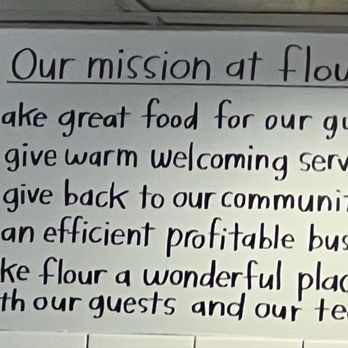 Our mission at flou
ake great food for our gu
give warm welcoming serv
give back to our communi
an efficient profitable bus
ke flour a wonderful plac
th our guests and our te